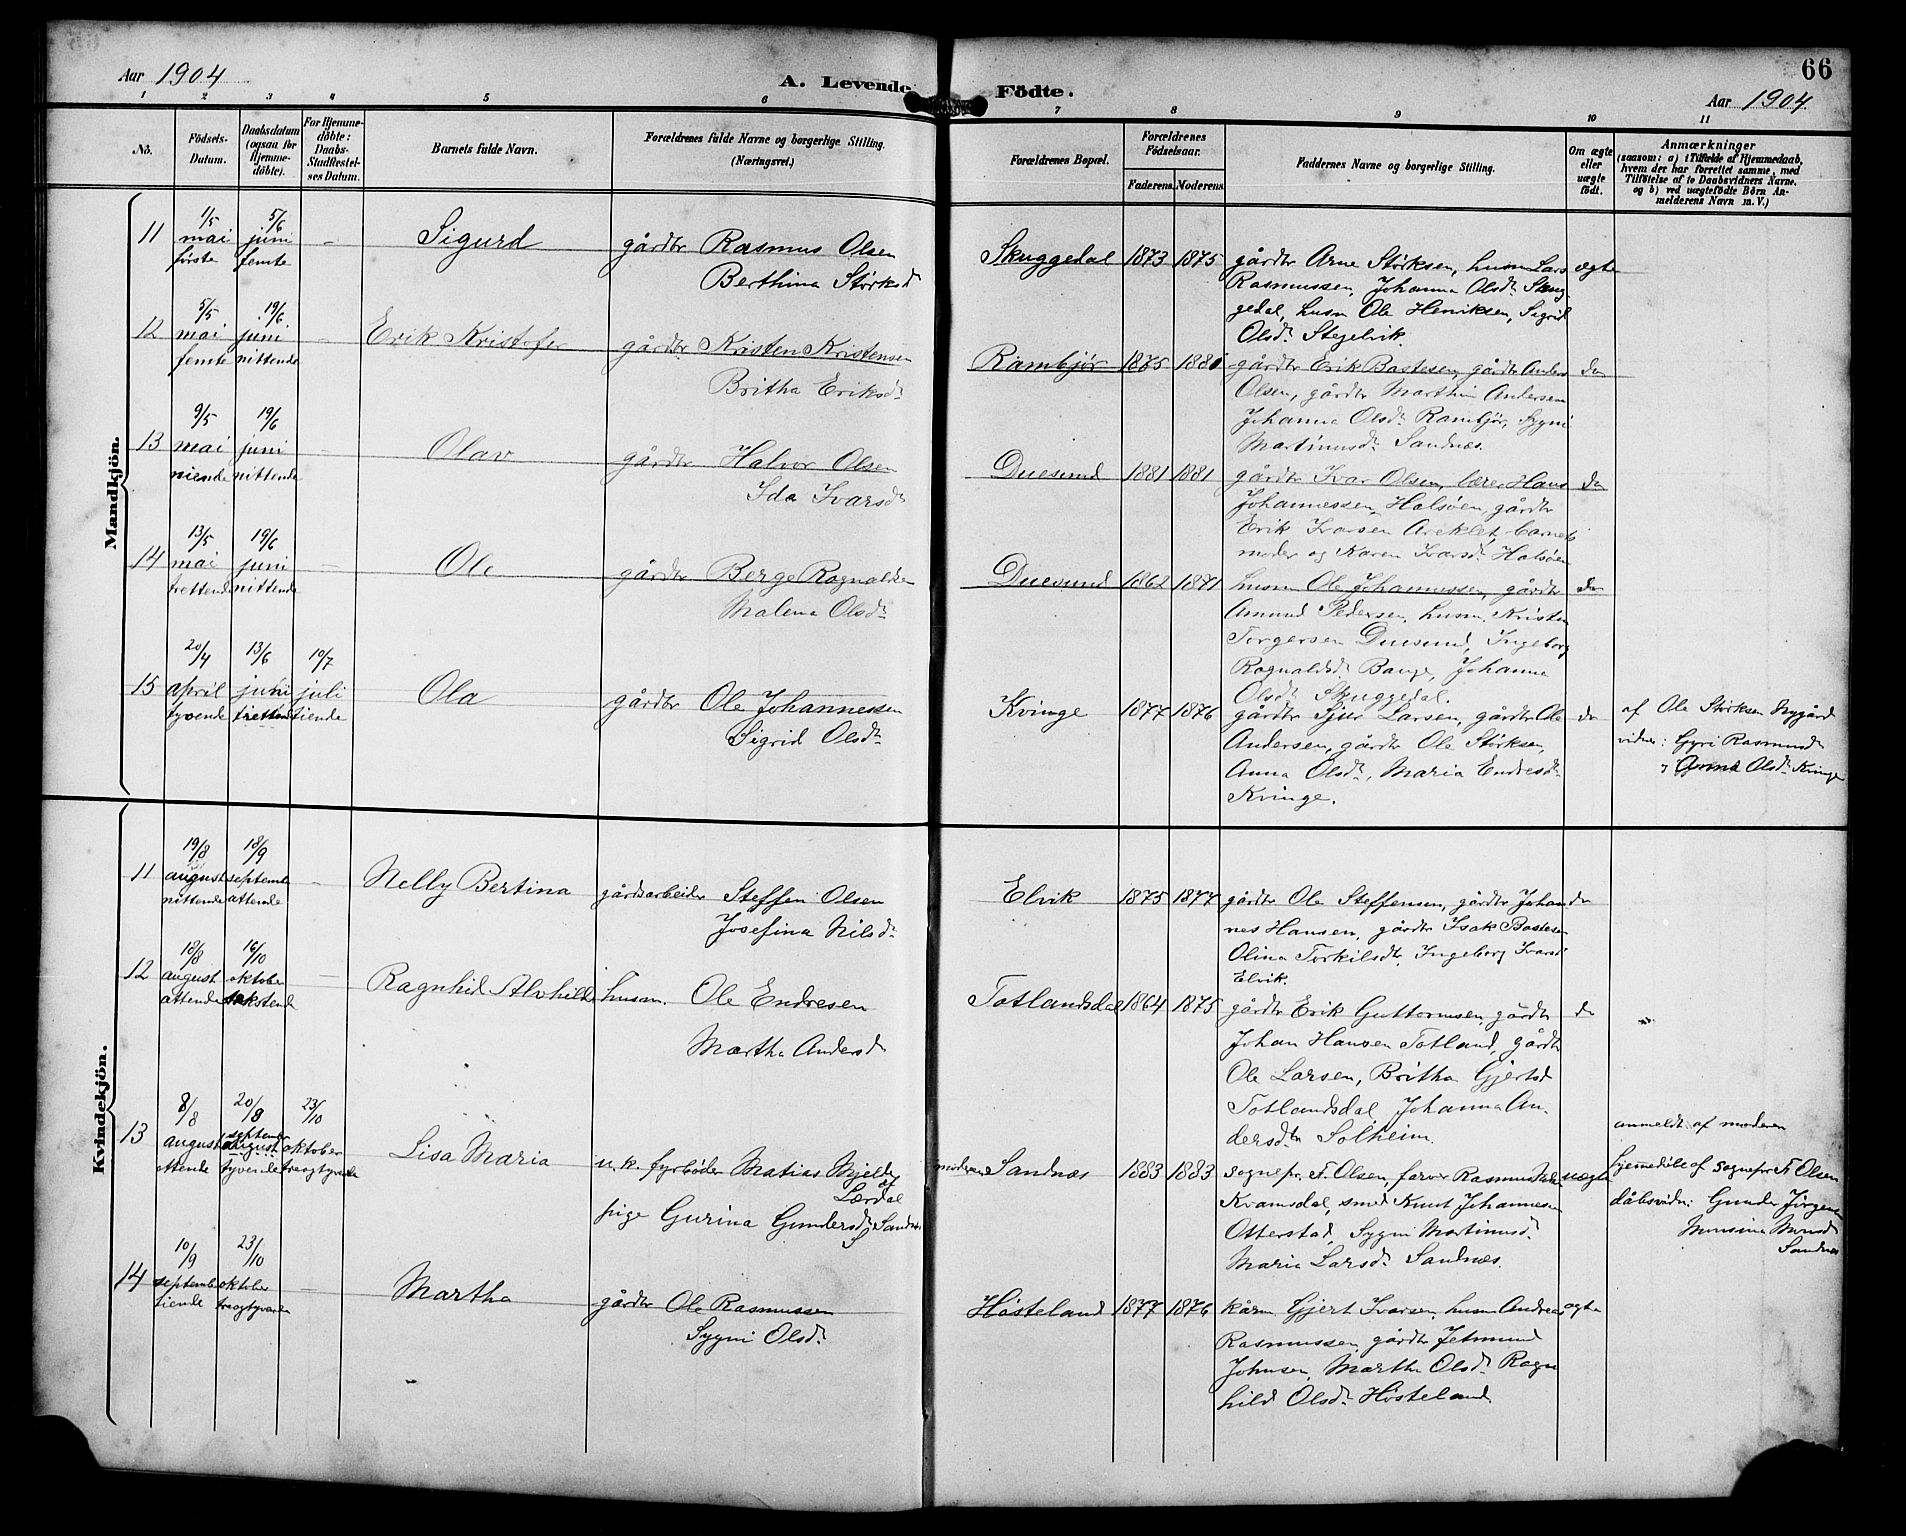 Aar 1904
A. Levende Födte.
66
Aar 1904.
1 2 3 4 5 6 7 8 9 10 11
No.
Födsels-
Datum.
Daabsdatum
(ogsaa for
Hjemme-
döbte).
For Hjemme-
döbte:
Daabs-
Stadfæstel-
ses Datum.
Barnets fulde Navn.
Forældrenes fulde Navne og borgerlige Stilling.
(Næringsvei.)
Forældrenes Bopæl.
Forældrenes
Födselsaar.
Faderens.
Moderens.
Faddernes Navne og borgerlige Stilling.
Om ægte
eller
uægte
födt.
Anmærkninger
(saasom: a) i Tilfælde af Hjemmedaab,
hvem der har forrettet samme, med
Tilföielse af to Daabsvidners Navne.
og b) ved uægtefödte Börn An-
melderens Navn m. V.)
Mandkjön.
11
1/5
mai
første
5/6
juni
femte
Sigurd
gårdbr Rasmus Olsen
Berthina Størksd
Skuggedal 1873 1875
gårdbr Arne Størksen, husm Lars
Rasmussen, Johanna Olsdr Skug
gedal, husm Ole Henriksen, Sigrid
Olsdr Stegelvik.
ægte
12
5/5
mai
femte
19/6
juni
nittende
Erik Kristofer
gårdbr Kristen Kristensen
Britha Eriksdr
Rambjør
gårdbr Erik Bastesen, gårdbr Anders
Olsen, gårdbr Marthin Andersen
Johanna Olsdr Rambjør, Sygni
Martinusdr Sandnæs.
do
13
9/5
mai
niende
19/6
juni
nittende
Olav
gårdbr Halvor Olsen
Ida Ivarsdr
Duesund 1881 1881
gårdbr Ivar Olsen, lærer Hans
Johannessen, Halsøen, gårdbr
Erik Ivarsen barnets
moder og Karen Ivarsdr Halsøen
do
14
13/5
mai
trettende
19/6
juni
nittende
Ole
gårdbr Berge Ragnaldsen
Malena Olsdr
Duesund 1862 1871
husm Ole Johannessen, gårdbr
Amund Pedersen, husm. Kristen
Torgersen Duesund, Ingeborg
Ragnaldsdr Bauge, Johanna
Olsdr Skuggedal.
do
15
20/4
april
tyvende
13/6
juni
trettende
10/7
juli
tiende
Ola
gårdbr Ole Johannessen
Sigrid Olsdr
Kvinge 1877 1876
gårdbr Sjur Larsen, gårdbr Ole
Andersen, gårdbr Ole Størksen,
Anna Olsdr, Maria Endresdr
Kvinge.
do
af Ole Størksen Nygård
vidner: Gyri Rasmusdr
Anna Olsdr Kvinge
Kvindekjön.
11
19/8
august
nittende
18/9
septembe
attende
Nelly Bertina
gårdsarbeider Steffen Olsen
Josefina Nilsdr
Elvik 1875 1877
gårdbr Ole Steffensen, gårdbr Johan
nes Hansen, gårdbr Isak Bastesen
Olina Torkilsdr, Ingeborg Ivarsd
Elvik.
do
12
18/8
august
attende
16/10
oktober
sekstende
Ragnhild Alvhilde
husm. Ole Endresen
Martha Andersd
Totlandsdal 1864 1875
gårdbr Erik Guttormsen, gårdbr
Johan Hansen Totland, gårdbr
Ole Larsen, Britha Gjertsd
Totlandsdal, Johanna An-
dersdtr Solheim.
do
13
8/8
august
ottende
20/8
septembe
august
tyvende
23/10
oktober
treogtyvende
Lisa Maria
u.k. fyrbøder Matias Mjelde
af
Lærdal
pige Gurina Gundersdr, Sandnæs
moderen Sandnæs 1883 1883
sognepr. F. Olsen, farver Rasmus
Kvamsdal, smed Knut Johannesen
Otterstad, Sygni Martinusdr
Maria Larsdr Sandnæs.
uægte
anmeldt af moderen
hjemmedøbt af sognepr F. Olsen
dåbsvidn: Gunder Jørgensen
Monsina Monsdr
Sandnæs
14
10/9
septembe
tiende
23/10
oktober
treogtyvende
Martha
gårdbr Ole Rasmussen
Sygni Olsdr
Høsteland 1877 1876
kårm Gjert Ivarsen, husm Andreas
Rasmussen, gårdbr Jetmund
Johnsen, Martha Olsdr Ragn
hild Olsdr Høsteland.
ægte